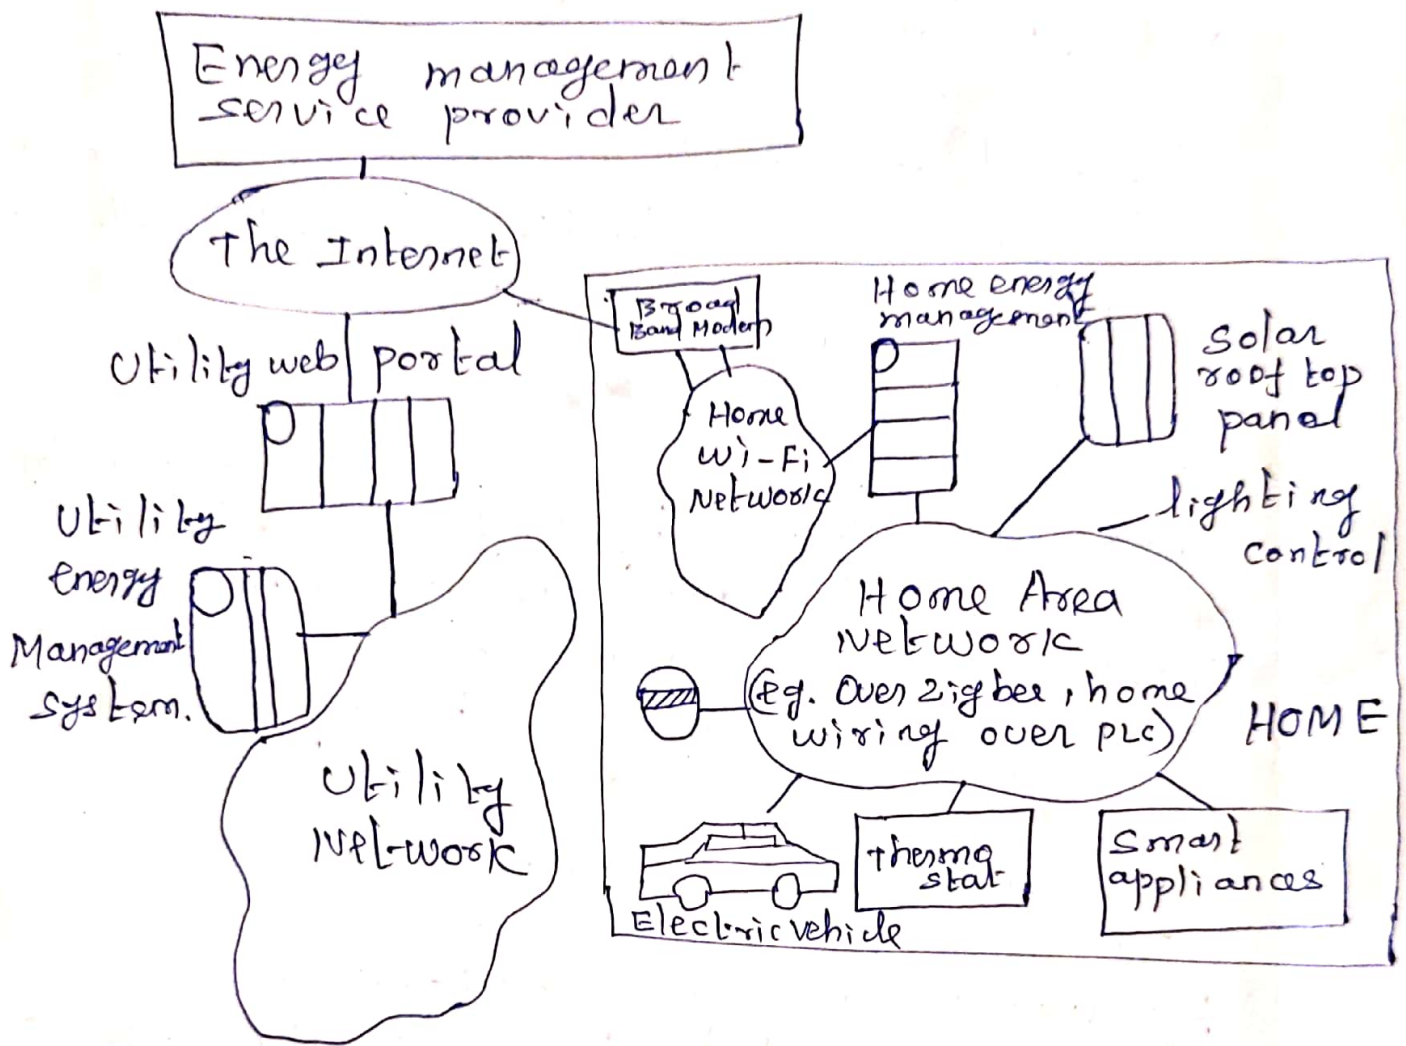 Energy management
service provider
The Internet
Utility web portal
Utility
energy
Management
system.
Utility
Network
Broad
Band Modem
Home
Wi-Fi
Network
Home energy
management
Solar
roof top
panel
lighting
control
Home Area
Network
(Eg. Over zigbee, home
wiring over PLC)
HOME
Electric vehicle
Thermo
stat
Smart
appliances